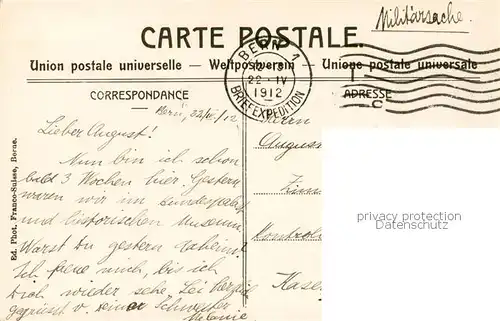 Militärsache.
CARTE POSTALE.
Union postale universelle — Weltpostverein — Unione postale universale
BERN 1
22.IV
1912
BRIEFEXPEDITION
CORRESPONDANCE
ADRESSE
Bern, 22/IV/12
Lieber August!
Nun bin ich schon
bald 3 Wochen hier. Gestern
waren wir im Bundespalast
und historischen Museum.
Warst du gestern daheim?
Ich freue mich, bis ich
Dich wieder sehe. Sei herzlich
gegrüsst v. deiner Schwester
Melanie
Herrn
August
Kontrol
Kaser
Ed. Phot. Franco-Suisse, Berne.
privacy protection
ansichtskarten-center.de